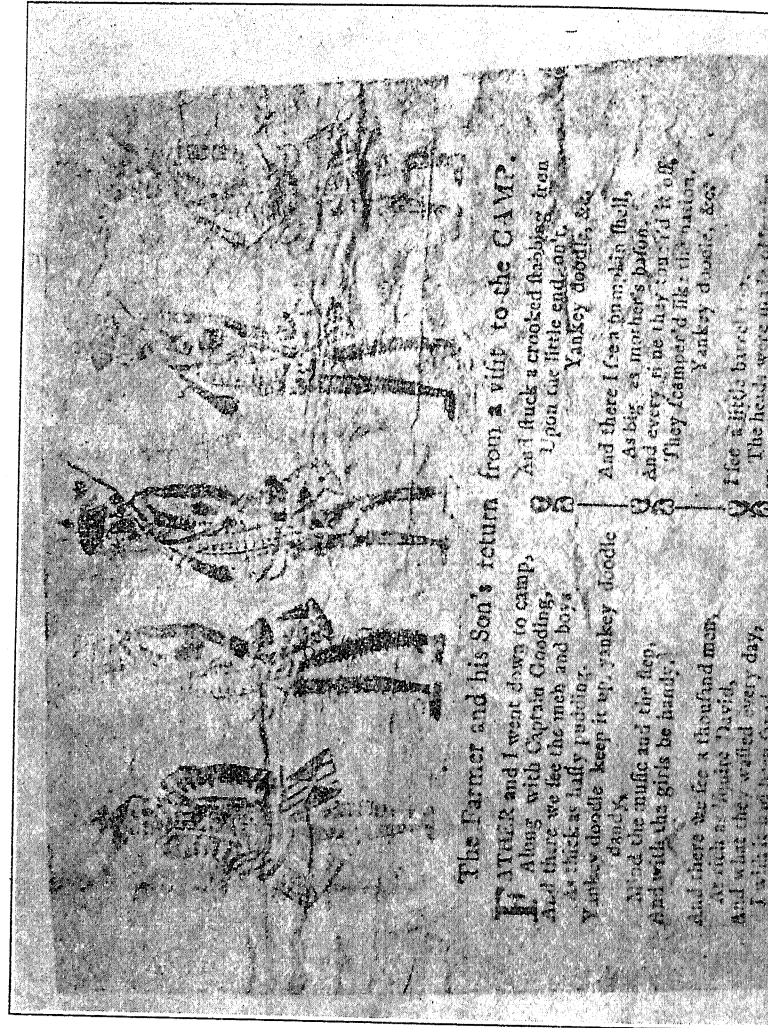 The Farmer and his Son's return from a visit to the CAMP.
FATHER and I went down to camp,
Along with Captain Gooding,
And there we see the men and boys
As thick as hasty pudding.
Yankey doodle keep it up, yankey doodle
dandy,
Mind the music and the step,
And with the girls be handy.
And there we see a thousand men,
As rich as 'Squire David,
And what they wasted every day,
I wish it
As I stuck a crooked stabbing iron
Upon the little end on't,
Yankey doodle, &c.
And there I see a pumpkin shell,
As big as mother's bason,
And every time they touch'd it off,
They scamper'd like the nation.
Yankey doodle, &c.
I see a little barrel too,
The heads were